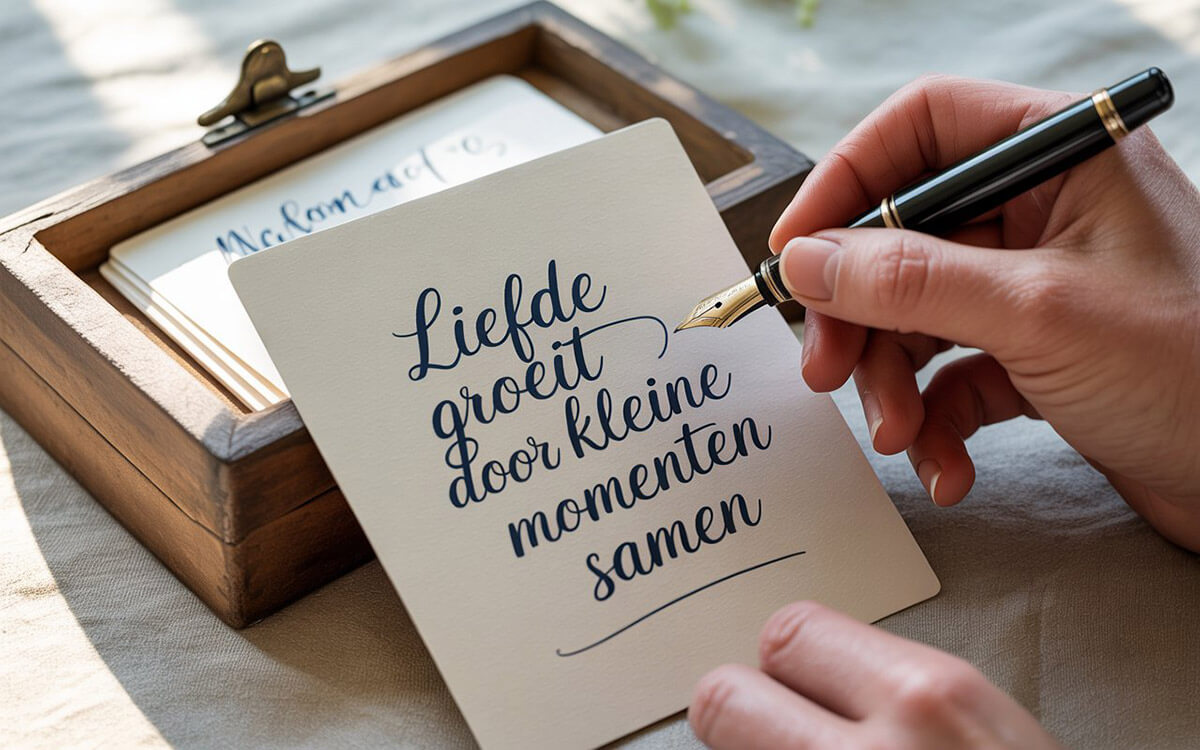 Liefde
groeit
door kleine
momenten
samen